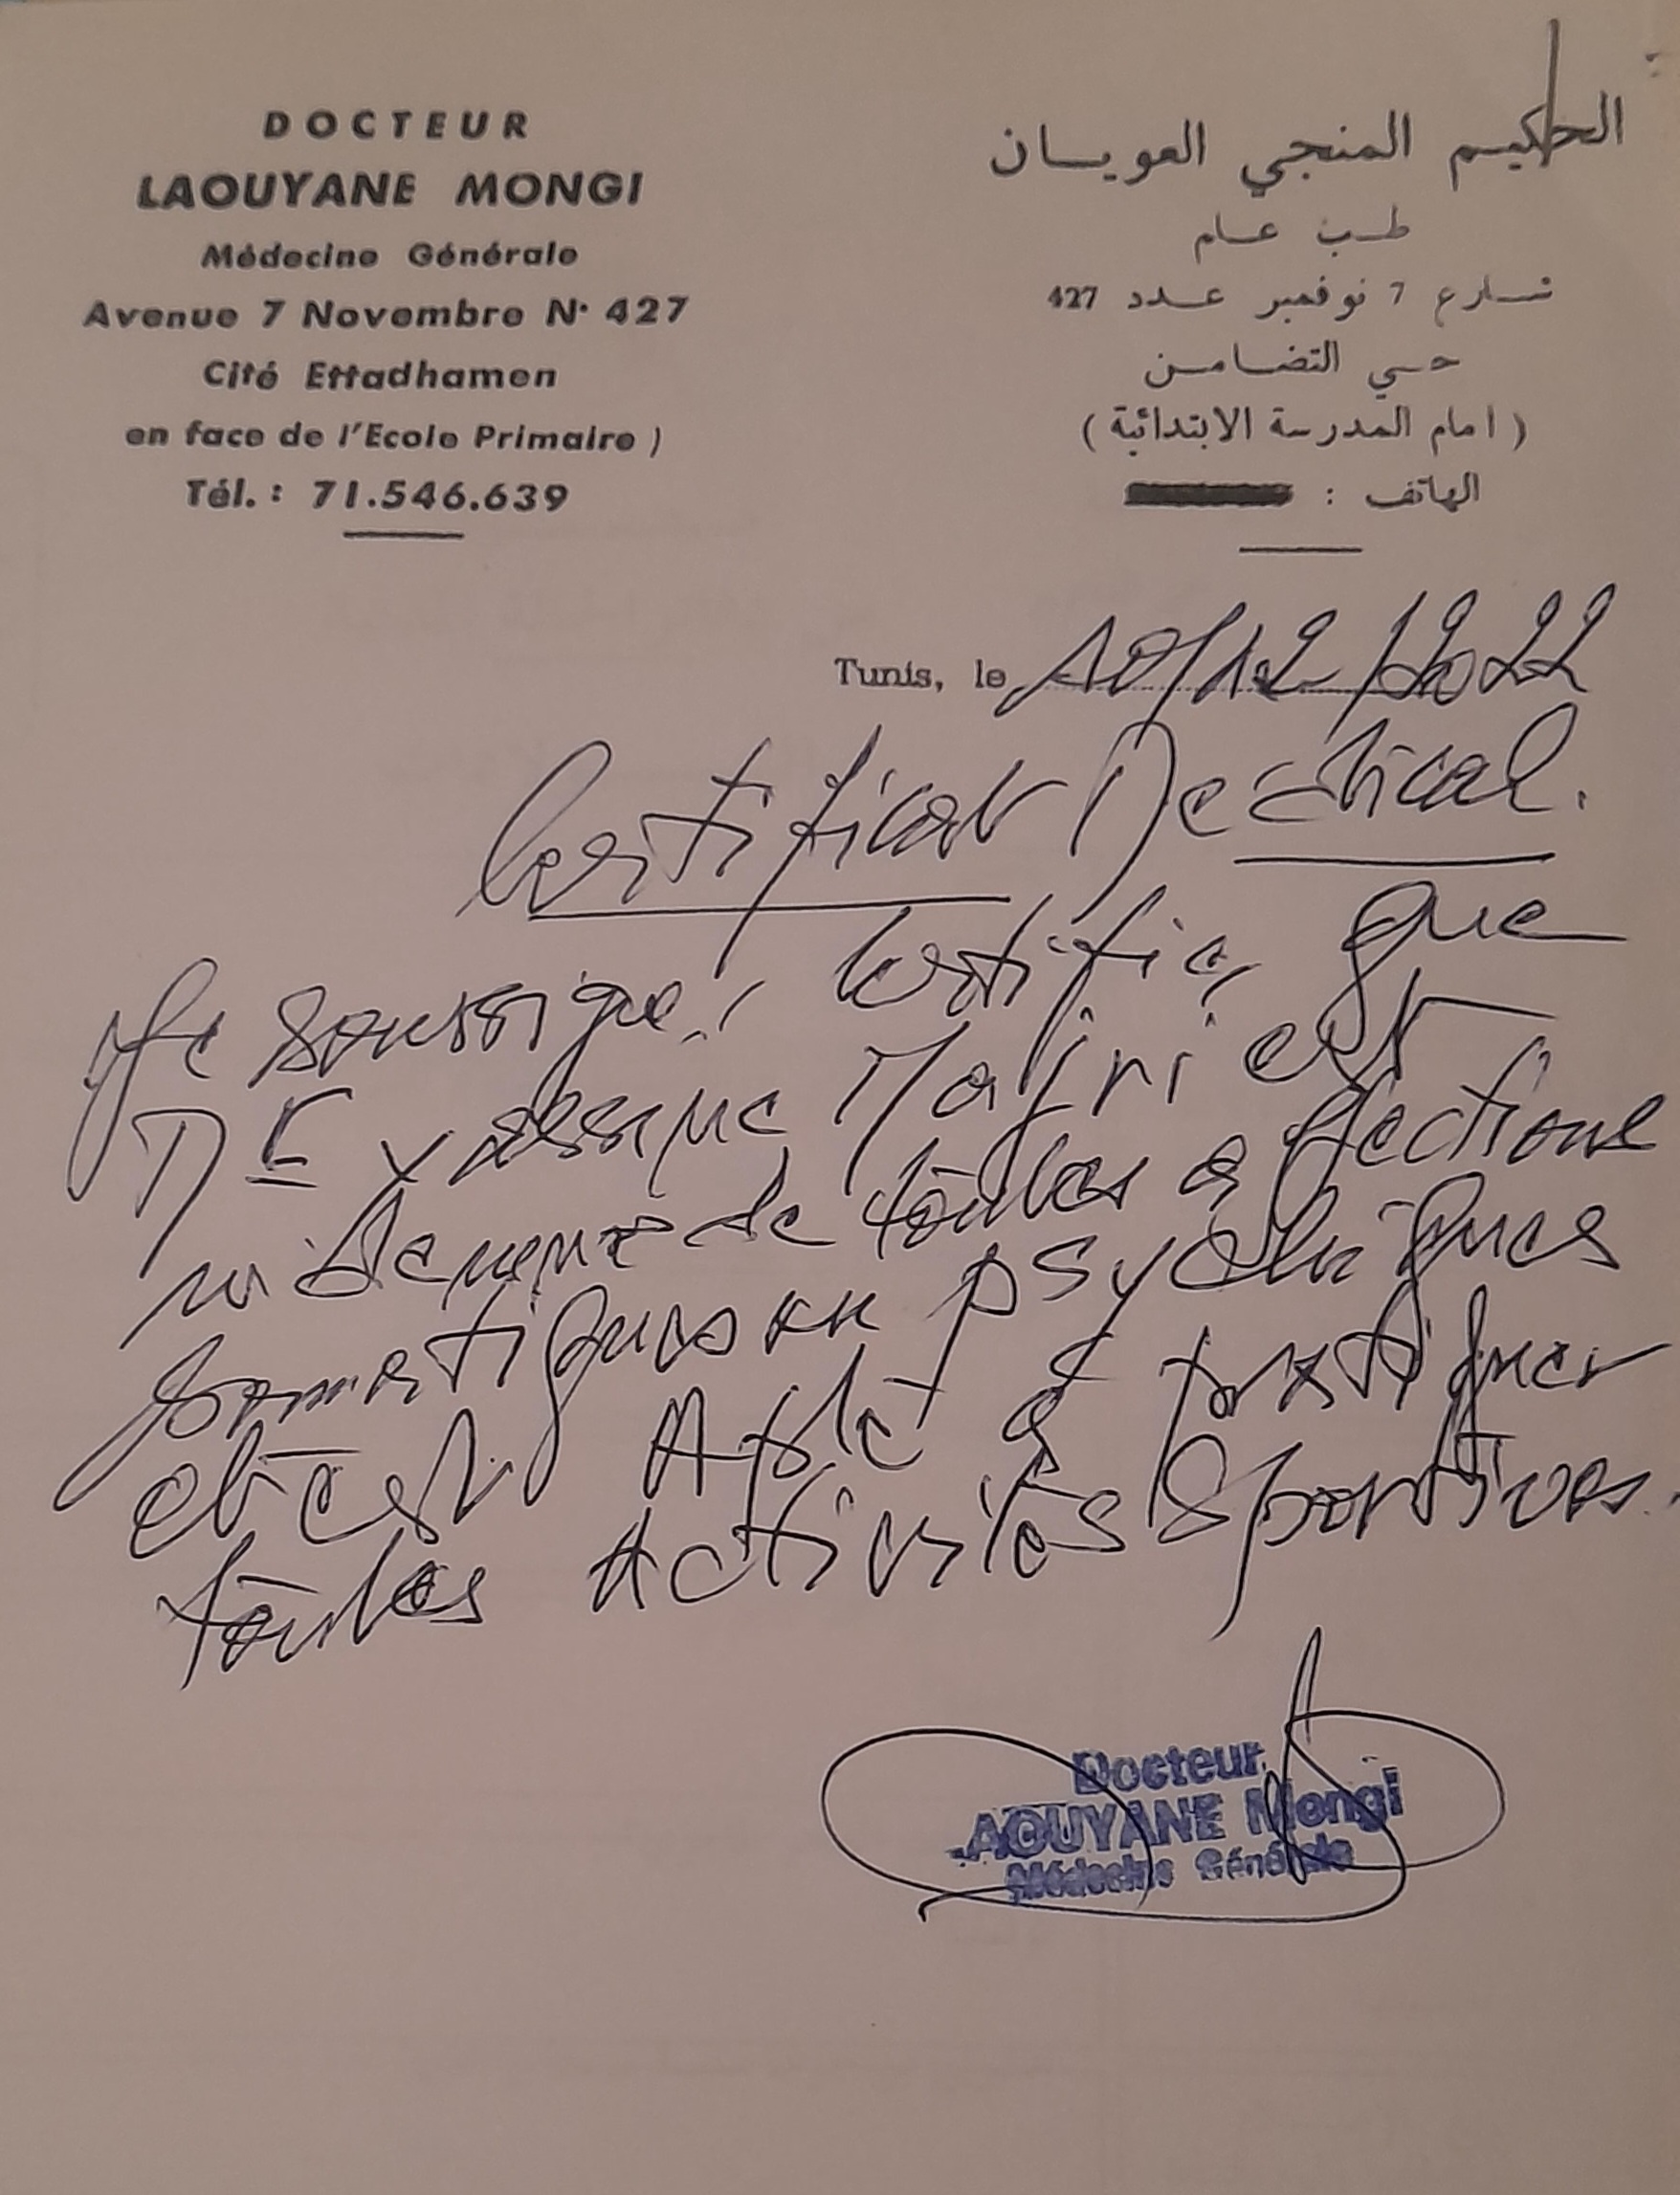 DOCTEUR
LAOUYANE MONGI
Médecine Générale
Avenue 7 Novembre N• 427
Cité Ettadhamen
en face de l'Ecole Primaire )
Tél. : 71.546.639
الحكيم المنجي العويسان
طب عام
شارع 7 نوفمبر عدد 427
حي التضامن
( امام المدرسة الابتدائية )
الهاتف :
Tunis, le 10/12/2022
Certificat Medical.
Je soussigné, certifie que
Mr Majri est
indemne de toutes affections
somatiques ou psychiques
et est Apte à pratiquer
toutes Activités Sportives.
Docteur
AOUYANE Mongi
Médecine Générale